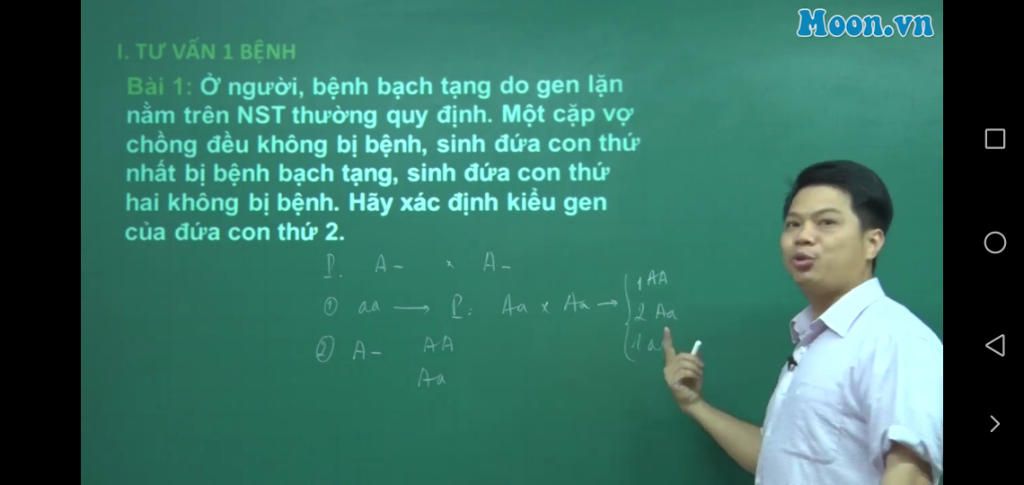 Moon.vn
I. TƯ VẤN 1 BỆNH
Bài 1: Ở người, bệnh bạch tạng do gen lặn
nằm trên NST thường quy định. Một cặp vợ
chồng đều không bị bệnh, sinh đứa con thứ
nhất bị bệnh bạch tạng, sinh đứa con thứ
hai không bị bệnh. Hãy xác định kiểu gen
của đứa con thứ 2.
P. A- x A-
1 AA
① aa → P: Aa x Aa → 2 Aa
② A- AA
1 a
Aa